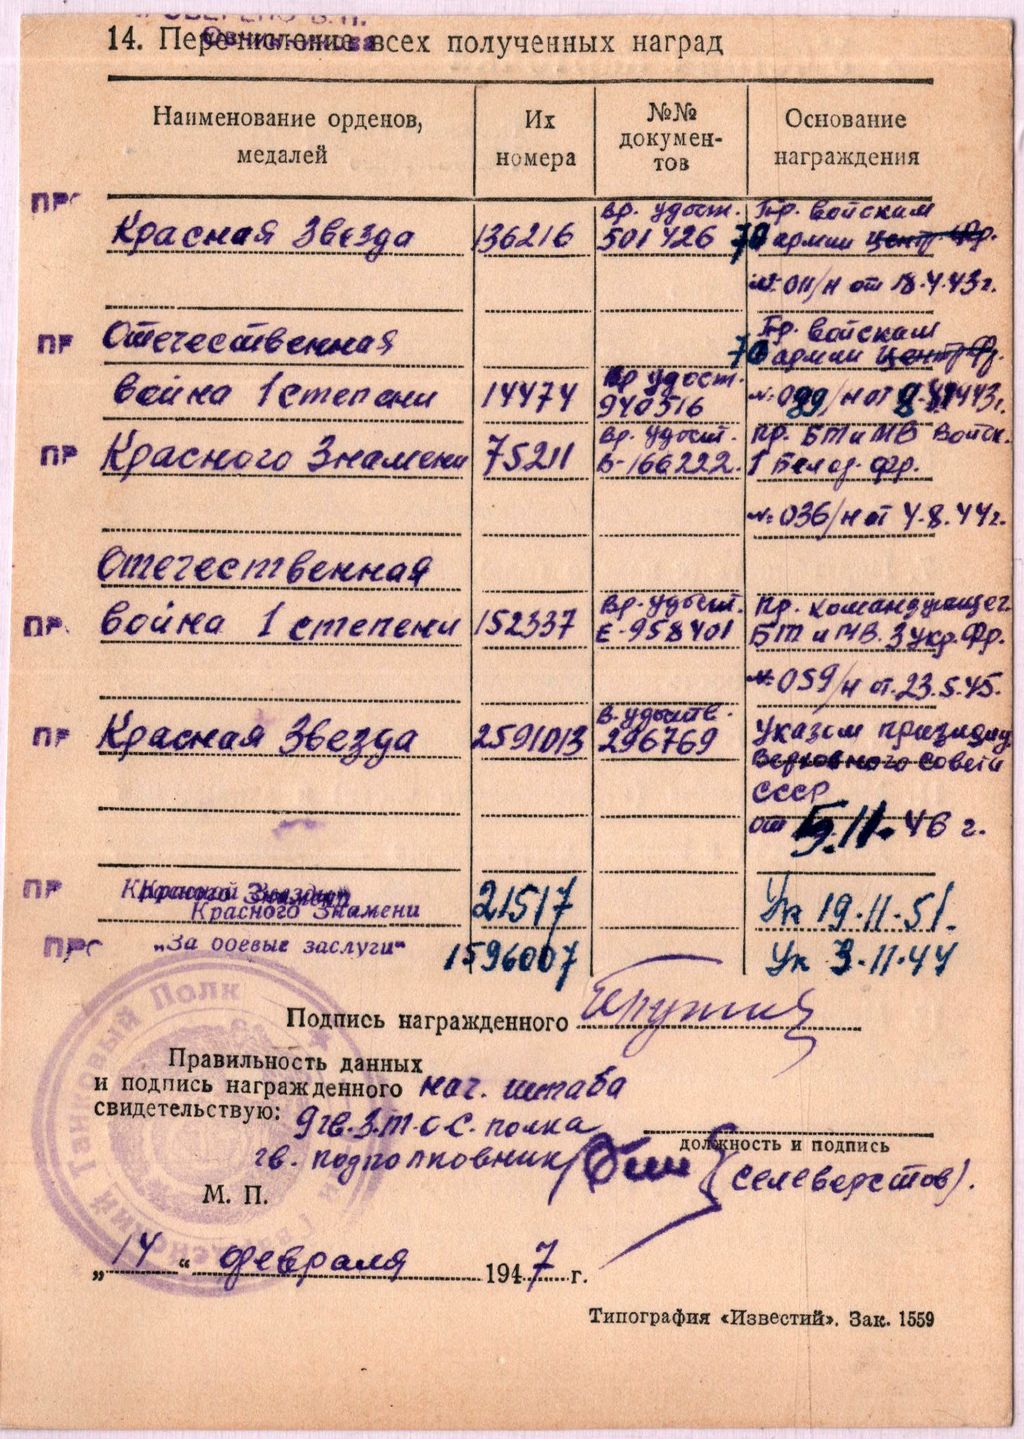 14. Перечисление всех полученных наград
Наименование орденов, медалей
Их номера
№№ документов
Основание награждения
ПРО
Красная Звезда
136216
Вр. удост.
501426
Пр. войскам
70 армии Центр. Фр.
№ 011/н от 18.4.43г.
ПР
Отечественная
война 1 степени
14474
Вр удост.
940516
Пр. войскам
70 армии Центр Фр.
ПР
Красного Знамени
75211
Вр. удост.
В-166222.
Пр. БТ и МВ Войск.
1 Белор. фр.
№ 036/н от 4.8.44г.
Отечественная
ПР
война 1 степени
152337
Вр. удост.
Е-958401
Пр. командующег.
БТ и МВ. 3 Укр. Фр.
№ 059/н от. 23.5.45.
ПР
Красная Звезда
2591013
В. удоств.
296769
Указом президиу
Верховного Совета
СССР
от 5.11. 46 г.
ПР
Красного Знамени
21517
Ук 19-11-51.
ПРО
„За боевые заслуги“
1596007
Ук 3-11-44
Подпись награжденного
Правильность данных
и подпись награжденного нач. штаба
свидетельствую: 9 гв. З.Т.О.С. полка
должность и подпись
гв. подполковник (Селеверстов).
М. П.
„14“ февраля 1947 г.
Типография «Известий». Зак. 1559
Гвардейский Танковый Полк